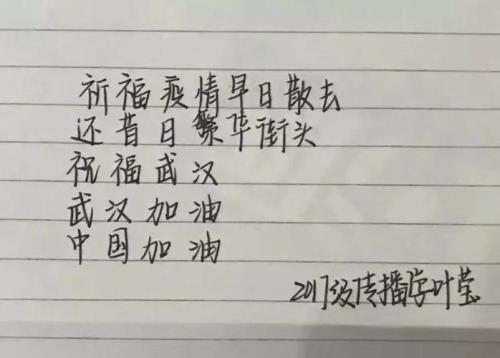 祈福疫情早日散去
还昔日繁华街头
祝福武汉
武汉加油
中国加油
2017级传播学叶莹